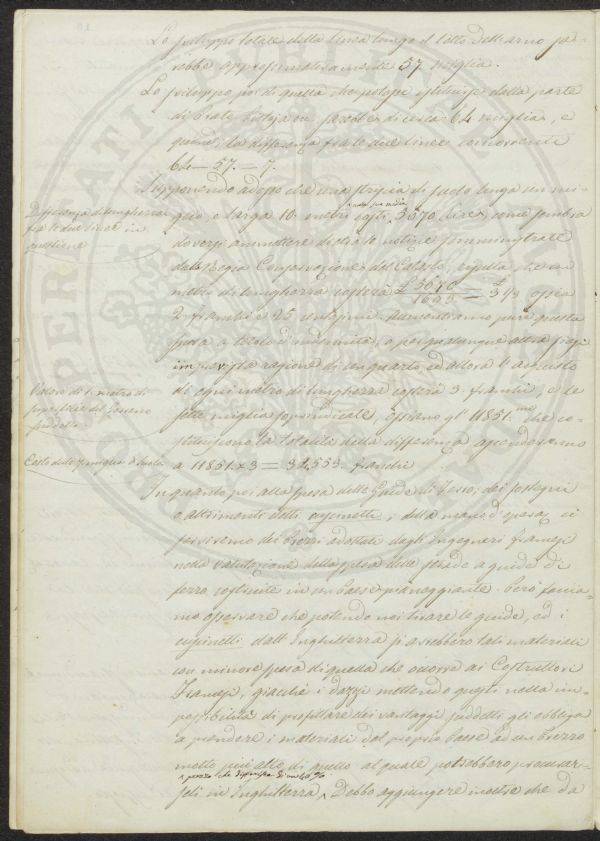 Lo sviluppo totale della linea lungo il lato dell'arno sa-
rebbe approssimativamente 57 miglia.
Lo sviluppo poi di quella che potesse dalla parte
di Prato Pistoja ec. sarebbe di circa 64 miglia, e
quindi la differenza fra le due linee
64 – 57 = 7.
Differenza di lunghezza
fra le due linee in
quistione
Supponendo adesso che una striscia di suolo lunga un mi-
glio, e larga 10 metri costi 5670 Lire, come sembra
doversi ammettere dietro le notizie somministrate
dalla Regia Conservazione del Catasto, risulta, che un
metro di lunghezza costerà £ 5670 / 1693 = £ 3 1/3 ossia
2 franchi e 25 centesimi. Aumentiamo pure questa
spesa a titolo d'indennità, o per qualunque altra spesa
imprevista in ragione di un quarto, ed allora l'acquisto
Valore di 1. metro di
superficie del terreno
suddetto
di ogni metro di lunghezza costerà 3 franchi, e le
sette miglia sopraindicate, ossiano gl' 11851. che co-
stituiscono la totalità della differenza ascenderanno
Costo delle 7 miglia di suolo
a 11851 x 3 = 32,553. franchi
In quanto poi alla spesa delle Guide di ferro, dei sostegni
o altrimenti detti cuscinetti, della mano d'opera, ci
serviremo dei prezzi adottati dagli Ingegneri francesi
nella valutazione della spesa delle strade a guide di
ferro costruite in un Paese pianeggiante. Però faccia-
mo osservare che potendo noi tirare le guide, ed i
cuscinetti dall'Inghilterra si avrebbero tali materiali
con minore spesa di quella che occorre ai Costruttori
Francesi, giacchè i dazzi mettendo questi nella im-
possibilità di profittare dei vantaggi suddetti gli obbliga
a prendere i materiali dal proprio Paese ad un prezzo
molto più alto di quello al quale potrebbero procurar-
seli in Inghilterra. Debbo aggiungere inoltre che da